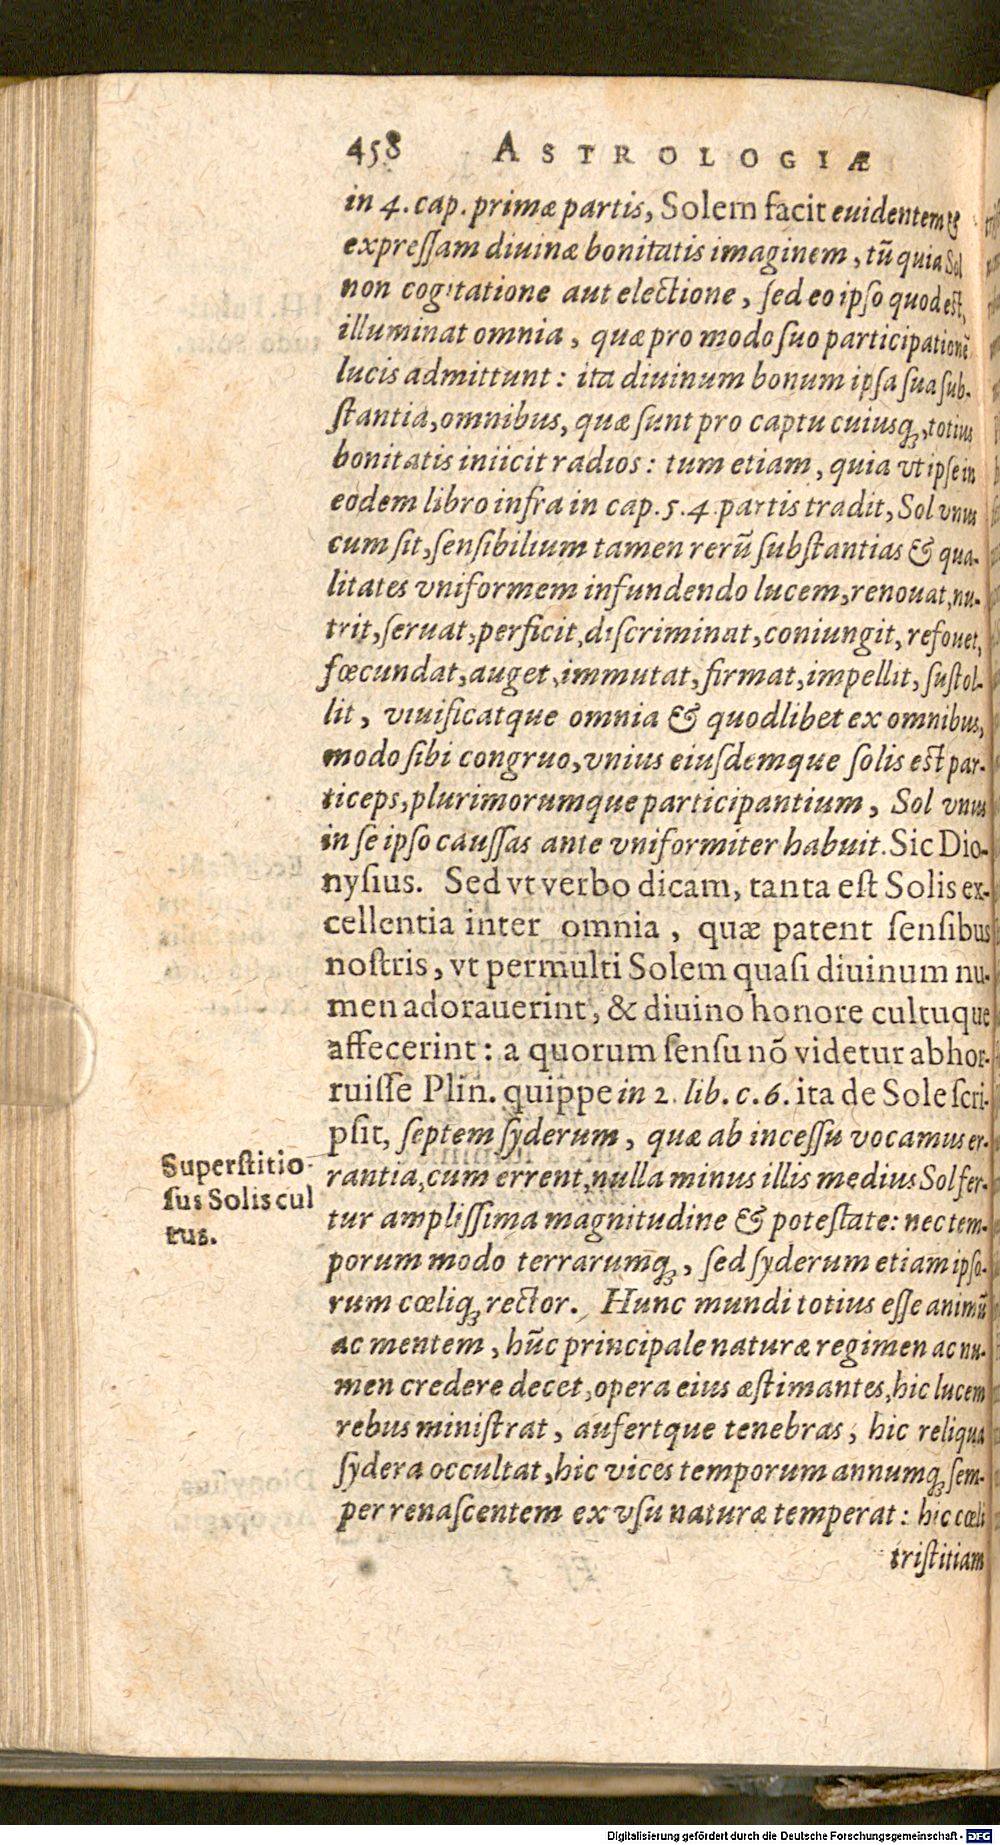 458 ASTROLOGIÆ
in 4. cap. primæ partis, Solem facit euidentem &
expreſſam diuinæ bonitatis imaginem, tū quia Sol
non cogitatione aut electione, ſed eo ipſo quod eſt,
illuminat omnia, quæ pro modo ſuo participationē
lucis admittunt: ita diuinum bonum ipſa ſua ſub-
ſtantia, omnibus, quæ ſunt pro captu cuiusq́;, totius
bonitatis iniicit radios: tum etiam, quia vt ipſe in
eodem libro infra in cap. 5. 4. partis tradit, Sol vnus
cum ſit, ſenſibilium tamen rerū ſubſtantias & qua-
litates vniformem infundendo lucem, renouat, nu-
trit, ſeruat, perficit, diſcriminat, coniungit, refouet,
fœcundat, auget, immutat, firmat, impellit, ſuſtol-
lit, viuificatque omnia & quodlibet ex omnibus,
modo ſibi congruo, vnius eiuſdemque ſolis eſt par-
ticeps, plurimorumque participantium, Sol vnus
in ſe ipſo cauſſas ante vniformiter habuit. Sic Dio-
nyſius. Sed vt verbo dicam, tanta eſt Solis ex-
cellentia inter omnia, quæ patent ſenſibus
noſtris, vt permulti Solem quaſi diuinum nu-
men adorauerint, & diuino honore cultuque
affecerint: a quorum ſenſu nō videtur abhor-
ruiſſe Plin. quippe in 2. lib. c. 6. ita de Sole ſcri-
pſit, ſeptem ſyderum, quæ ab inceſſu vocamus er-
rantia, cum errent, nulla minus illis medius Sol fer-
tur ampliſſima magnitudine & poteſtate: nec tem-
porum modo terrarumq́;, ſed ſyderum etiam ipſo-
rum cœliq́; rector. Hunc mundi totius eſſe animū
ac mentem, hūc principale naturæ regimen ac nu-
men credere decet, opera eius æſtimantes, hic lucem
rebus miniſtrat, aufertque tenebras, hic reliqua
ſydera occultat, hic vices temporum annumq́; ſem-
per renaſcentem ex vſu naturæ temperat: hic cœli
triſtitiam
Superſtitio-
ſus Solis cul
tus.
Digitalisierung gefördert durch die Deutsche Forschungsgemeinschaft - DFG